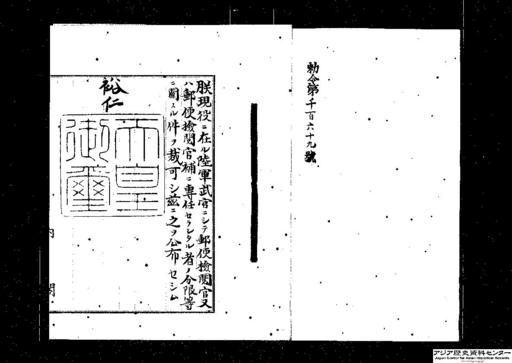 勅令第千百六十九號
朕現役ニ在ル陸軍武官ニシテ郵便檢閲官又
ハ郵便檢閲官補ニ専任セラレタル者ノ分限等
ニ關スル件ヲ裁可シ茲ニ之ヲ公布セシム
裕仁
天皇
御璽
内閣
アジア歴史資料センター
Japan Center for Asian Historical Records